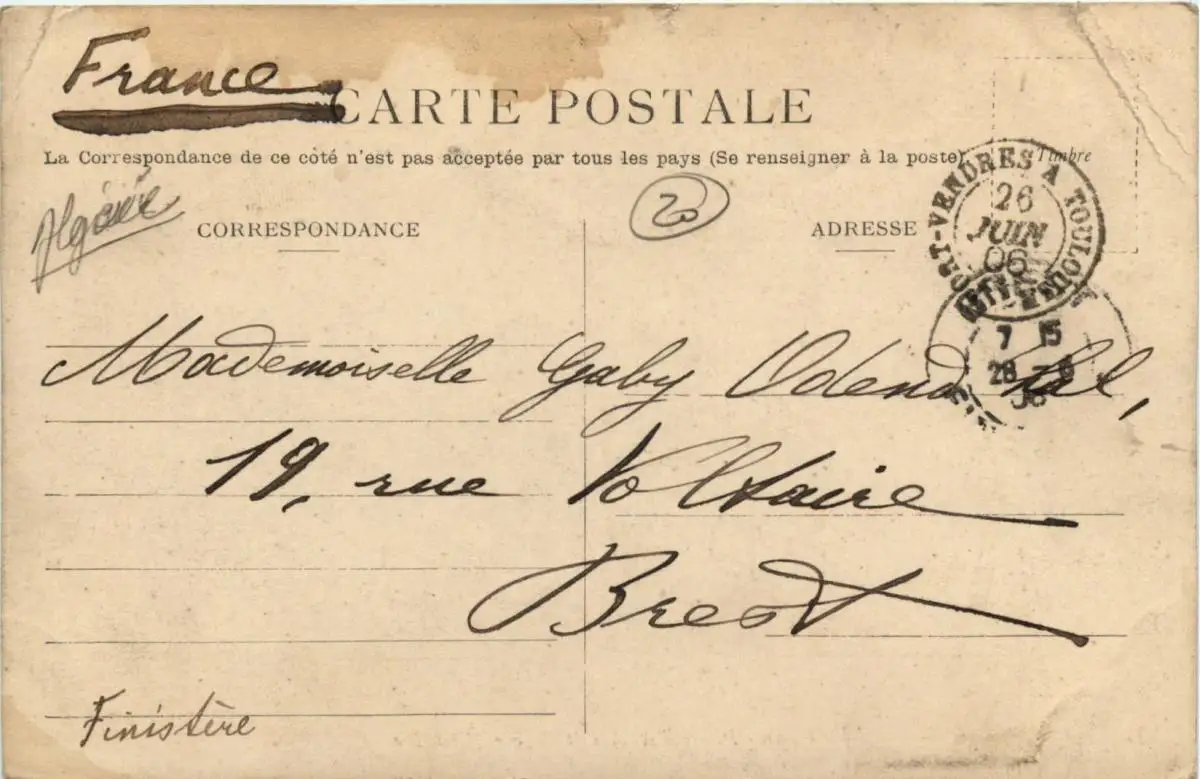 France
CARTE POSTALE
La Correspondance de ce côté n'est pas acceptée par tous les pays (Se renseigner à la poste)
Timbre
Algérie
CORRESPONDANCE
20
ADRESSE
PORT-VENDRES A TOULOUSE
26
JUIN
06
7 15
28 - 6
06
Mademoiselle Gaby Odendhal,
19, rue Voltaire
Brest
Finistère